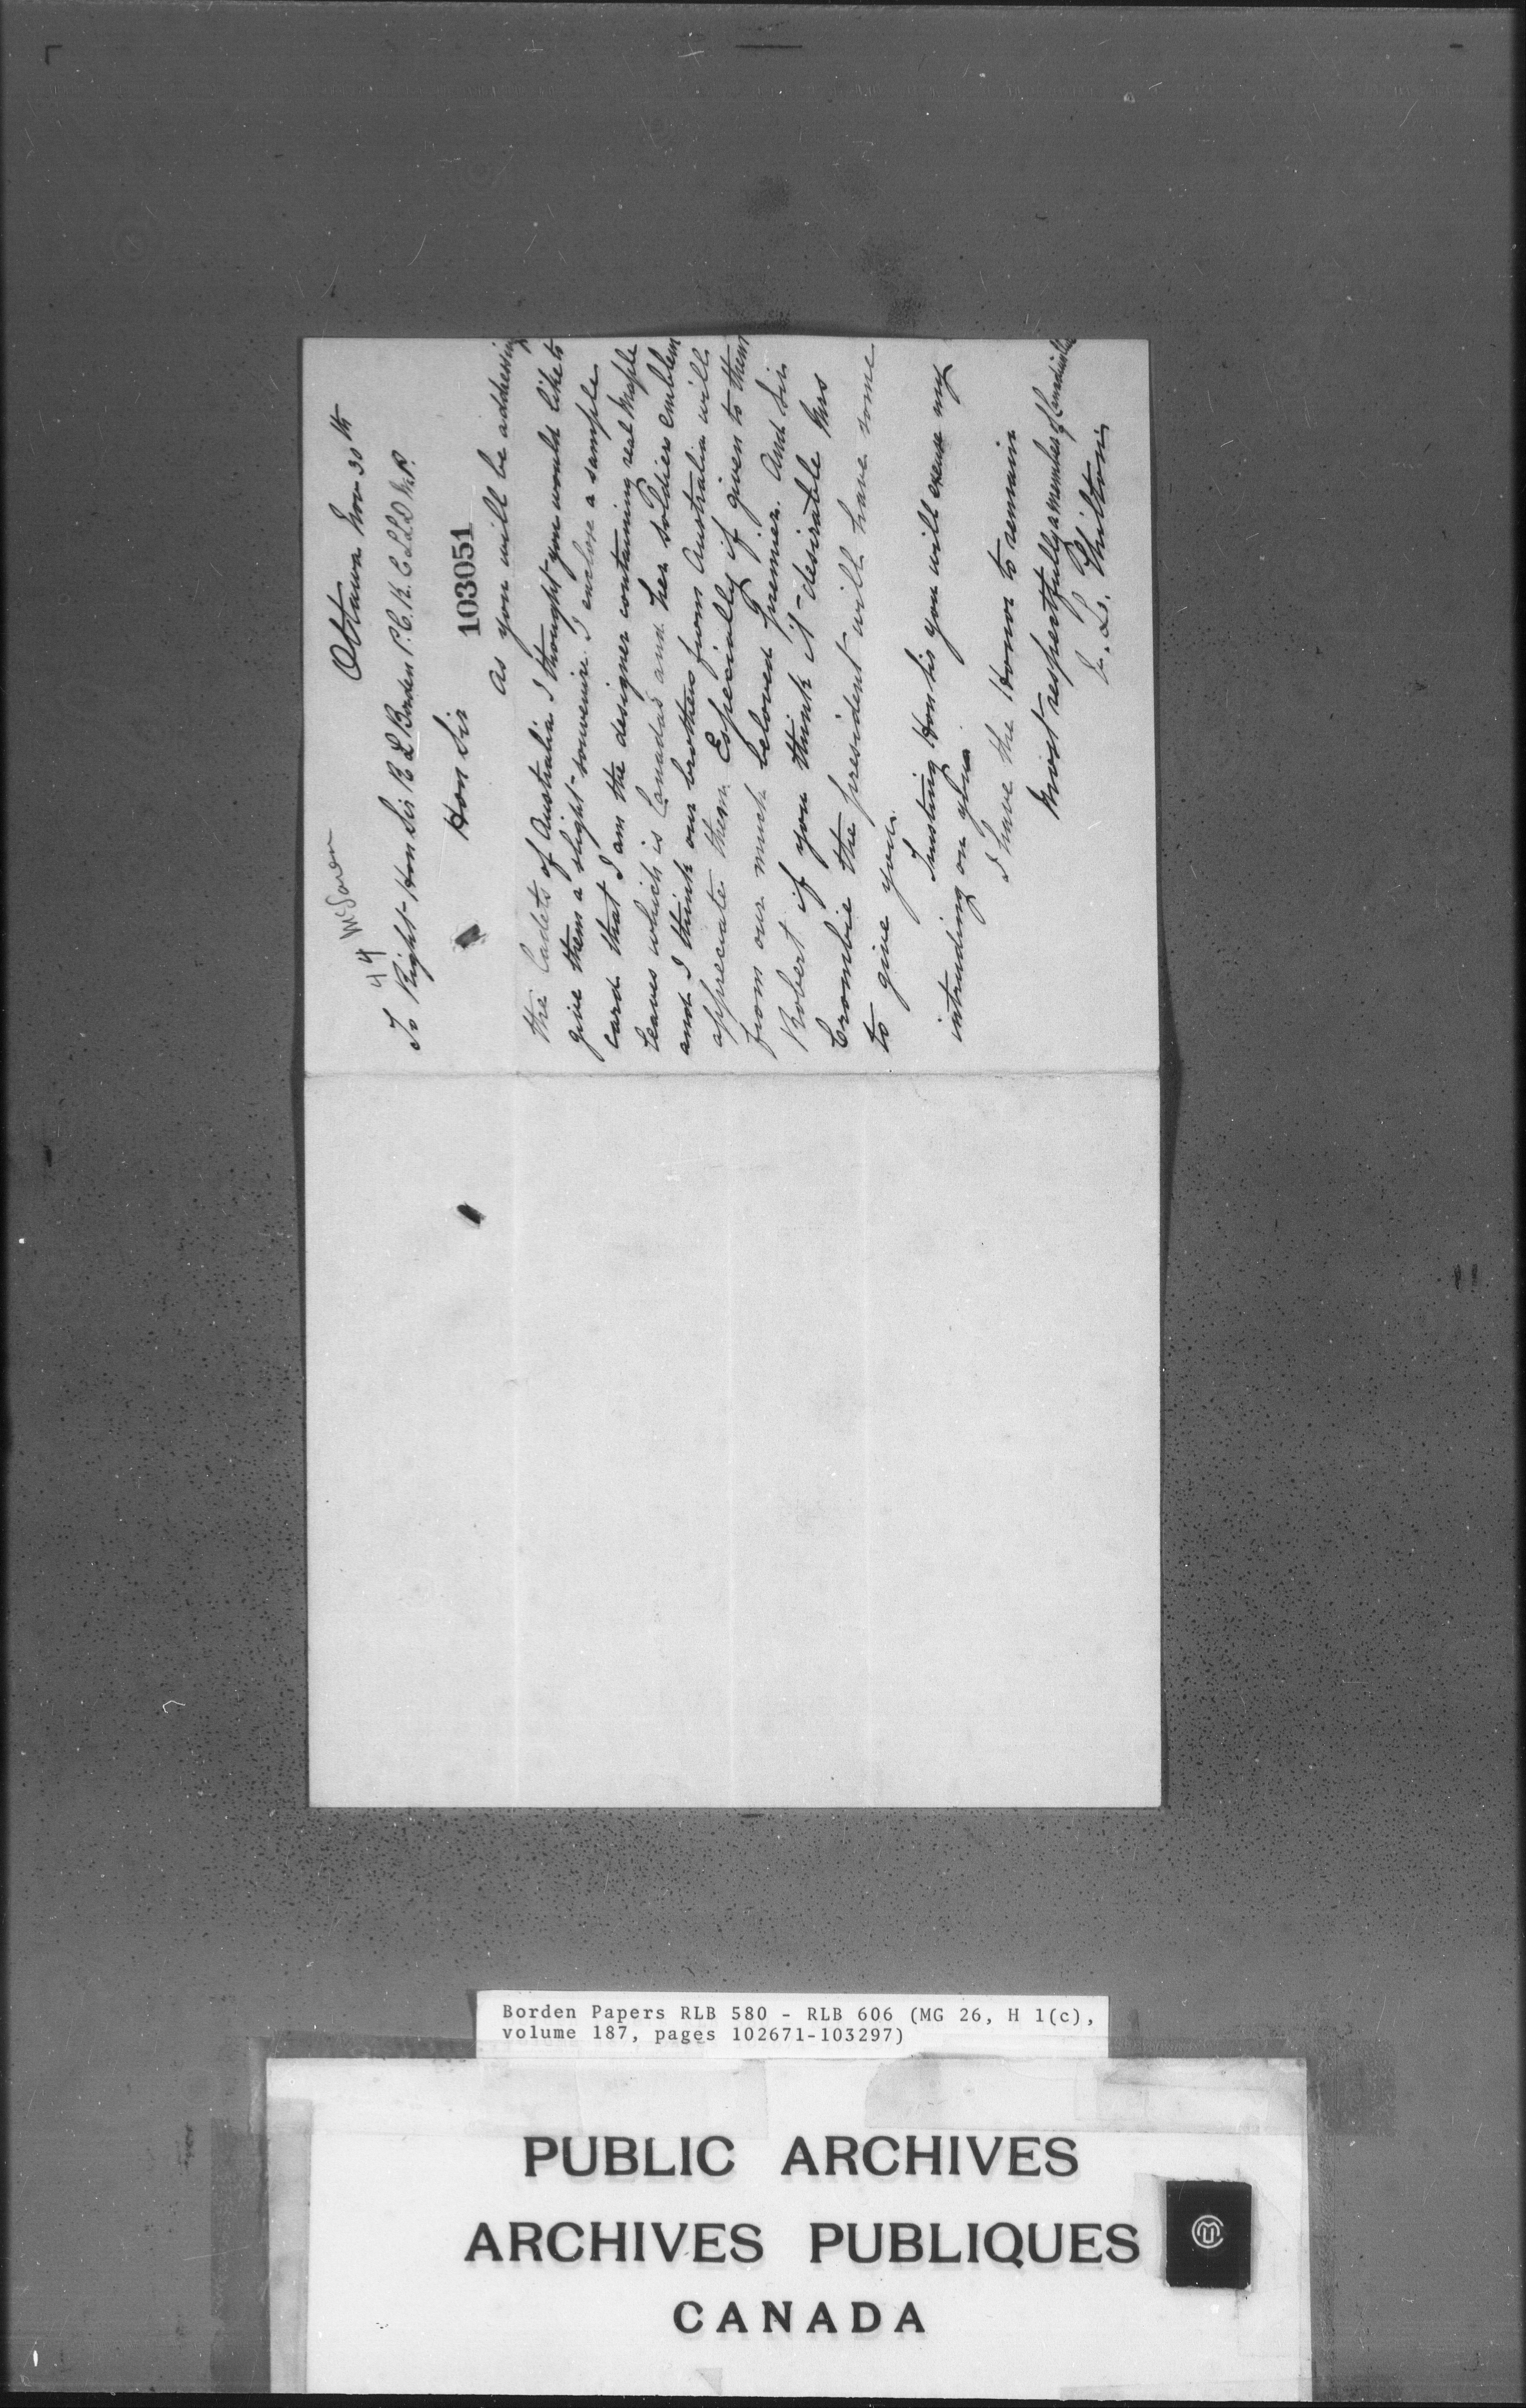 44 McLaren
Ottawa Nov 30th
To Right Hon Sir R L Borden P.C. K.C. LLD M.P.
103051
Hon Sir
As you will be addressing
the Cadets of Australia I thought you would like to
give them a slight souvenir. I enclose a sample
card that I am the designer containing real Maple
Leaves which is Canadas and her soldiers emblem
and I think our brothers from Australia will
appreciate them Especially if given to them
from our much beloved premier. And Sir
Robert if you think it desirable Mrs
Crombie the president will have some
to give you.
Trusting Hon Sir you will excuse my
intruding on you.
I have the Honor to remain
Most respectfully a member of
Borden Papers RLB 580 - RLB 606 (MG 26, H 1(c),
volume 187, pages 102671-103297)
PUBLIC ARCHIVES
ARCHIVES PUBLIQUES
CANADA